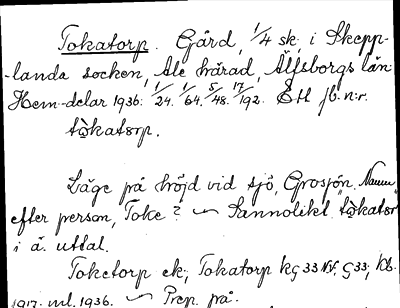 Tokatorp. Gård, 1/4 sk, i Skepp-
-landa socken, Ale härad, Älfsborgs län
Hem-delar 1936: 1/24. 1/64. 5/48. 17/192. Ett jb.n:r.
tωkatωrp.
Läge på höjd vid sjö, Grosjön. Namn
efter person, Toke? ~ Sannolikt "tωkatωr
i ä. uttal.
Toketorp ek; Tokatorp kg 33 NV. G 33; kb.
1917. ml. 1936. ~ Prep. på.